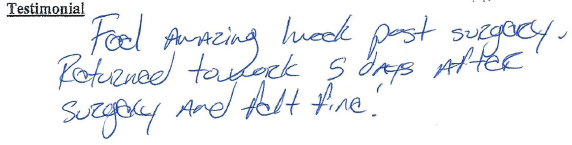 Testimonial
Feel Amazing week post surgery.
Returned to work 5 days after
surgery and felt fine!